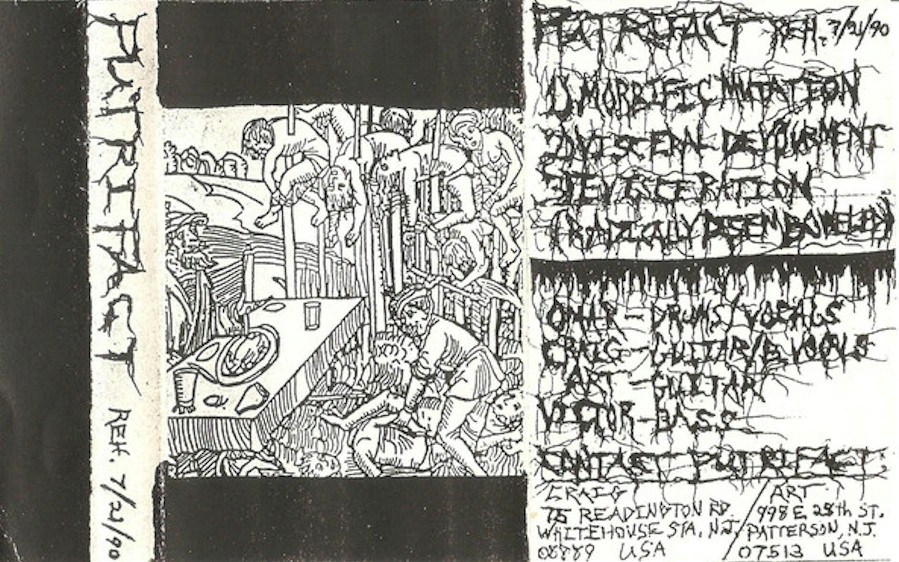 PUTRIFACT REH. 7/21/90
PUTRIFACT REH. 7/21/90
1) MORBIFIC MUTATION
2) VISCERAL DEVOURMENT
3) EVISCERATION
(RADICALLY DISEMBOWELED)
OMAR - DRUMS/VOCALS
CRAIG - GUITAR/B. VOCALS
ART - GUITAR
VICTOR - BASS
CONTACT PUTRIFACT:
CRAIG
75 READINGTON RD.
WHITEHOUSE STA, N.J.
08889 USA
ART
998 E. 28th ST.
PATTERSON, N.J.
07513 USA